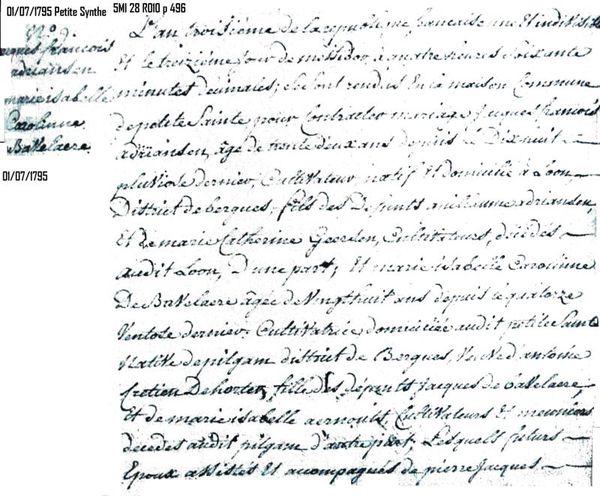 01/07/1795 Petite Synthe 5MI 28 R010 p 496
N.° 9.
Jacques francois
adriansen
marie isabelle
Carolinne
BaVelaere
01/07/1795
L'an troisième de la republique francaise une Et indivisible
Et le treizeme jour de messidor, a quatre heures soixante
minutes decimales; ce sont rendus En la maison Commune
de petite Sainte pour Contracter mariage, Jacques francois
adriansen, age de trente deux ans depuis le Dix neuf
pluviose dernier, Cultivateur, natif Et domicilié à Loon,
District de bergues, fils des Defunts Guillaume adriansen,
Et de marie Catherine Geerssen, Cultivateurs, décédés
audit Loon, D'une part; Et marie isabelle Carolinne
De BaVelaere agée de Vingt huit ans depuis le quatorze
Ventose dernier, Cultivatrice domiciliée audit petitte Sainte
Native de pilgam district de Bergues, Veuve d'antoine
Cretien Dehorter, fille des défunts Jacques de baVelaere,
Et de marie isabelle aernouts, Cultivateurs Et meuniers
décédés audit pilgam d'autre part, Lesquels futurs
Epoux assistés Et accompagnés de pierre Jacques